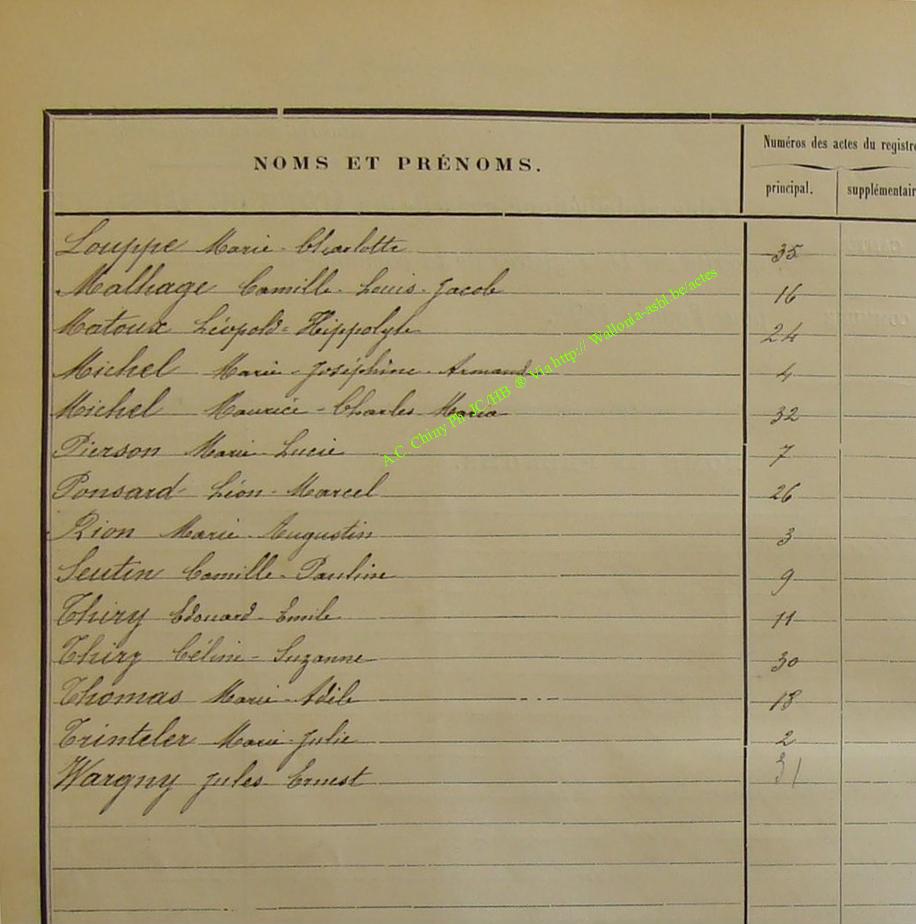 NOMS ET PRÉNOMS.
Numéros des actes du registre
principal. supplémentair
Louppe Marie-Charlotte 35
Malhage Camille-Louis-Jacob 16
Matoux Léopold-Hippolyte 24
Michel Marie-Joséphine-Armand 4
Michel Maurice-Charles-Maria 32
Pierson Marie-Lucie 7
Ponsard Léon-Marcel 26
Rion Marie-Augustin 3
Seutin Camille-Pauline 9
Thiry Edouard-Emile 11
Thiry Céline-Suzanne 30
Thomas Marie-Adile 18
Trinteler Marie-Julie 2
Wargny Jules Ernest 31
A.C. Chiny Ph JC/HB ® Via http:// Wallonia-asbl.be/actes